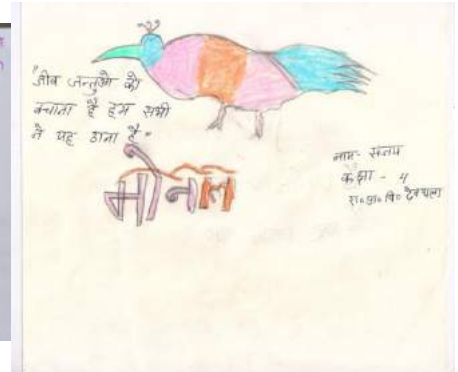 "जीव जन्तुओ को
बचाना है हम सभी
ने यह ठाना है"
मोनाल
नाम- संजय
कक्षा - 4
रा० प्रा० वि०